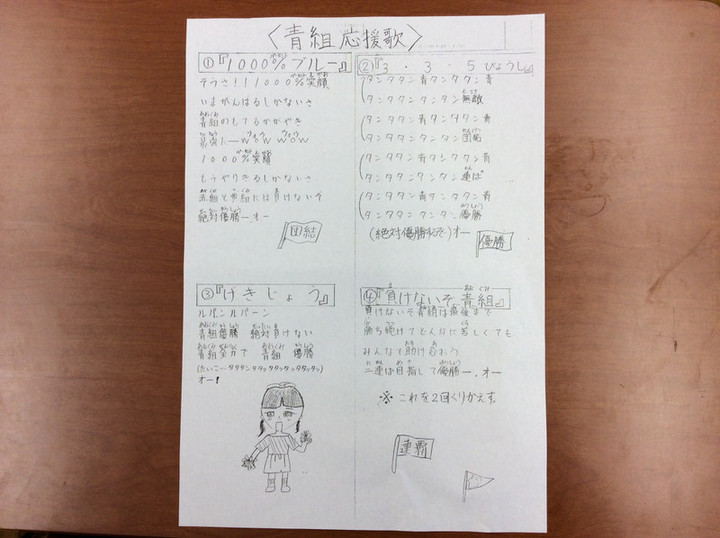 〈青組応援歌〉
①『1000%ブルー』
そうさ!!1000%笑顔
いまがんばるしかないさ
青組のもてるかがやき
wow wow
1000%笑顔
もうやりきるしかないさ
赤組と黄組には負けないぞ
絶対優勝ーオー
団結
②『3・3・5びょうし』
タンタタン青タンタタン青
タンタタンタンタン無敵
タンタタン青タンタタン青
タンタタンタンタン団結
タンタタン青タンタタン青
タンタタンタンタン連ぱ
タンタタン青タンタタン青
タンタタンタンタン優勝
(絶対優勝するぞ)オー
優勝
③『げきじょう』
ルパンルパーン
青組優勝 絶対負けない
青組全力で 青組 優勝
(たいこ…タタタンタタッタタッタタッタタッ)
オー!
④『負けないぞ青組』
負けないぞ青組は最後まで
勝ち続けてどんなに苦しくても
みんなで助け合おう
二連は目指して優勝ー.オー
※これを2回くりかえす。
連覇